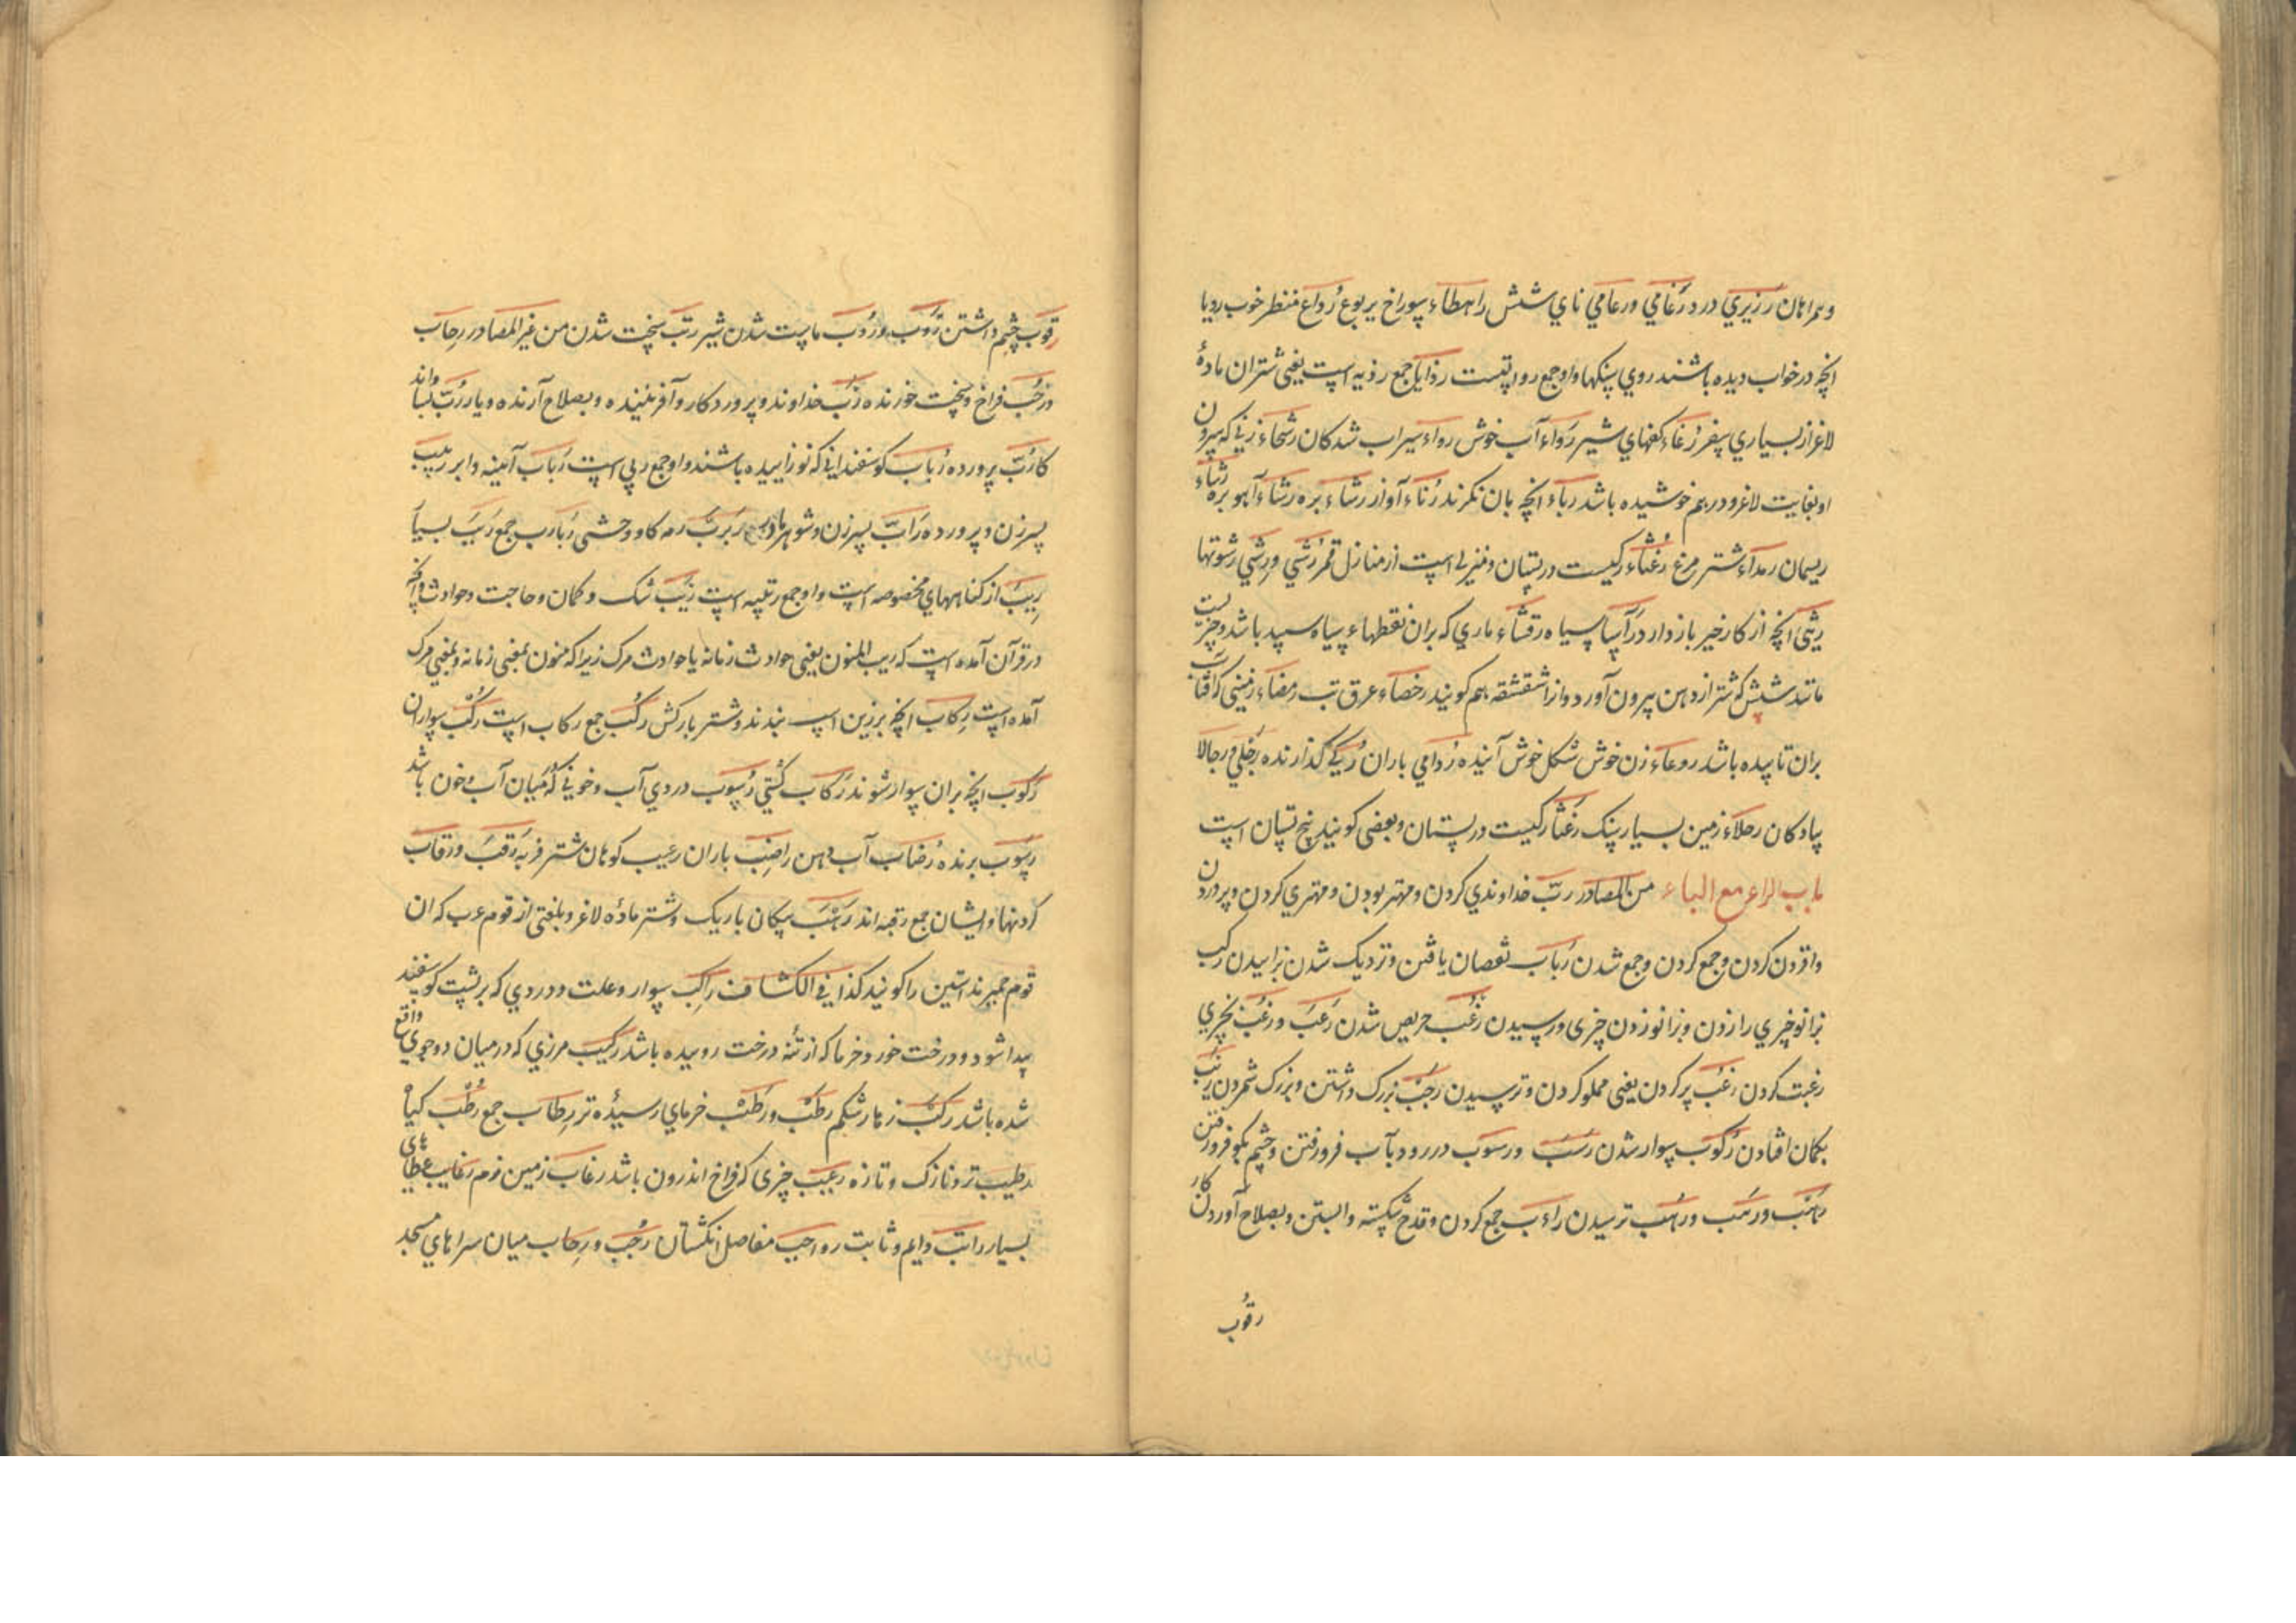 و همراهان رزيزي درد رُغامي و رعامي ناي شش راهطاء سوراخ يربوع رُواع منظر خوب رديا
انچه در خواب ديده باشند روي سنكها و او جمع است رذايا جمع رذيه است يعنى شتران مادۀ
لاغر از بسياري سفر رُغاء كفهاي شير رَواء آب خوش رواء سيراب شدكان رشحاء زني كه سرون
او بغايت لاغر و درهم خوشيده باشد رباء انچه بان نكرند رُناء آواز رشاء بره رشاء آهو بره رشاء
ريسمان رمداء شتر مرغ رُغثاء ركيست در پستان و منزلى است از منازل قمر رُشي و رِشي رشوتها
رثى انچه از كار خير باز دارد رآسا سياه رقشاء ماري كه بران نقطهاء سياه سپيد باشد و چيزيست
مانند شش كه شتر از دهن بيرون آورد و انرا شقشقه هم كويند رخصاء عرق تب رمضاء زمينى كه آفتاب
بران تابيده باشد روعاء زن خوش شكل خوش آينده رُوامي باران كذارنده رجلي و رجالا
پيادكان رجلاء زمين بسيار سنك رغثا ركيست در پستان و بعضى كويند بيخ پستان است
باب الراء مع الباء من المصادر ربّ خداوندي كردن و مهتر بودن و مهتري كردن و پروردن
و افزدن كردن و جمع كردن و جمع شدن رُباب نقصان يافتن و نزديك شدن بزاييدن ركب
بزانو چيزي را زدن و بزانو زدن چيزى و رسيدن رُغب حريص شدن رَغَب و رغب بچيزي
رغبت كردن رعب پر كردن يعنى مملو كردن و ترسيدن رجب بزرك داشتن و بزرك شمردن ريب
بكمان افتادن رُكوب سوار شدن رسب و رسوب در رود بآب فرو رفتن و چشم بكو فرو رفتن
رهب و رهب و رهب ترسيدن راءب جمع كردن و قدح شكسته وا بستن و بصلاح آوردن كار
رقوب
رقوب چشم داشتن رَوب و رُوب ماست شدن شير رتب سخت شدن من غير المصادر رحاب
و رحب فراخ و سخت خورنده رَب خداوند و پروردكار و آفريننده و بصلاح آرنده و يار رُبّ بسا و اند
كا رُبّ پرورده رُباب كوسفندانى كه نو زاييده باشند و او جمع ربي است رَباب آينه و ابر ربيب
پسر زن و پرورده رابّ پسر زن و شوهر مادر ربرب رمه كاو وحشى رَبارب جمع رَبب بسيار
ريب از كناههاي مخصوصه است و او جمع رتبه است رَيب شك و كمان و حاجت و حوادث و انچه
در قرآن آمده است كه ريب المنون يعنى حوادث زمانه يا حوادث مرك زيرا كه منون بمعنى زمانه و بمعنى مرك
آمده است رِكاب انچه بر زين اسپ بندند و شتر باركش رُكب جمع ركاب است ركب سواران
رَكوب انچه بران سوار شوند رَكاب كشتي رُسوب دردي آب و خونى كه ميان آب و خون باشد
رسوب برنده رُضاب آب دهن راضب باران رعيب كوهان شتر فربه رقب و رقاب
كردنها و ايشان جمع رقبه اند رَهب پيكان باريك و شتر مادۀ لاغر و بلغتى از قوم عرب كه ان
قوم حمير ند استين را كويند كذا فى الكشاف راكب سوار و علت و دردي كه بر پشت كوسفند
پيدا شود و درخت خورد خرما كه از تنه درخت روييده باشد ركيب مرزي كه در ميان دو جوي واقع
شده باشد ركب زهار شكم رطب و رَطب خرماي رسيدۀ تر رِطاب جمع رُطب كياه
رطيب تر و نازك و تازه رغيب چيزى كه فراخ اندرون باشد رغاب زمين نرم رغايب عطاهاى
بسيار راتب دايم و ثابت رواجب مفاصل انكشتان رُحب و رِحاب ميان سراهاي مسجد